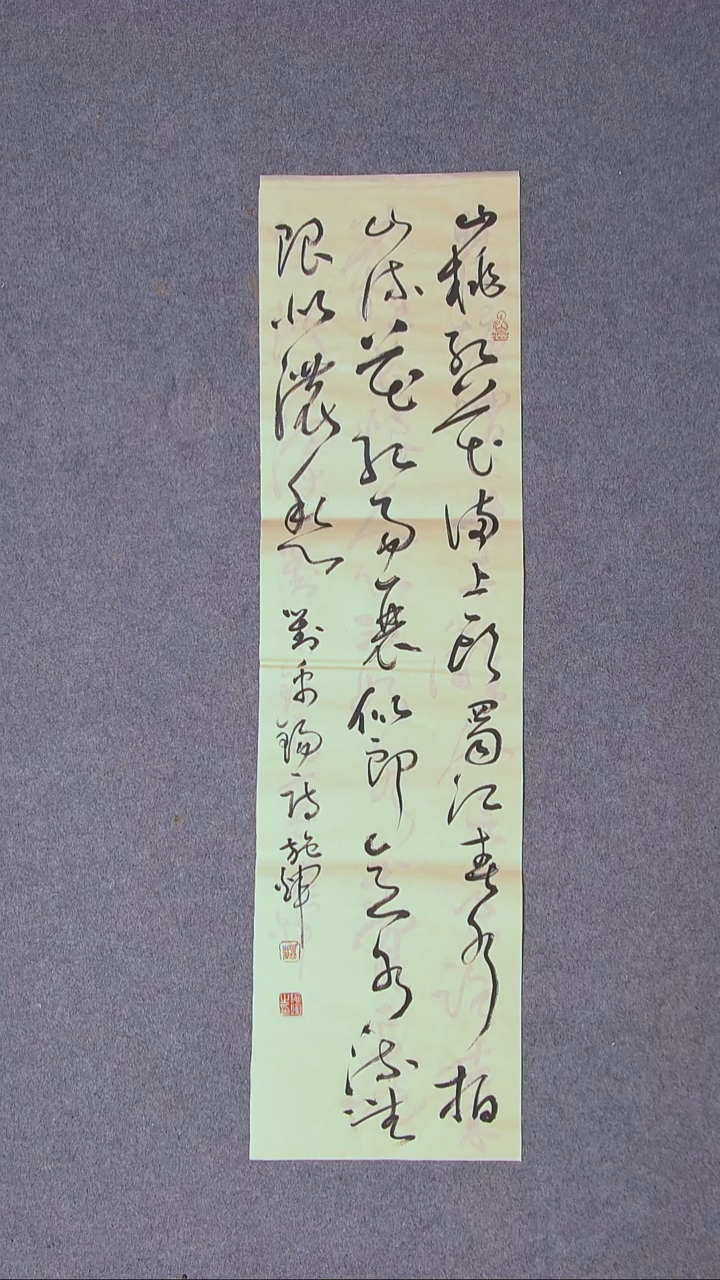 山桃紅花滿上頭蜀江春水拍
山流花紅易衰似郎意水流無
限似濃愁 劉禹錫詩 施輝